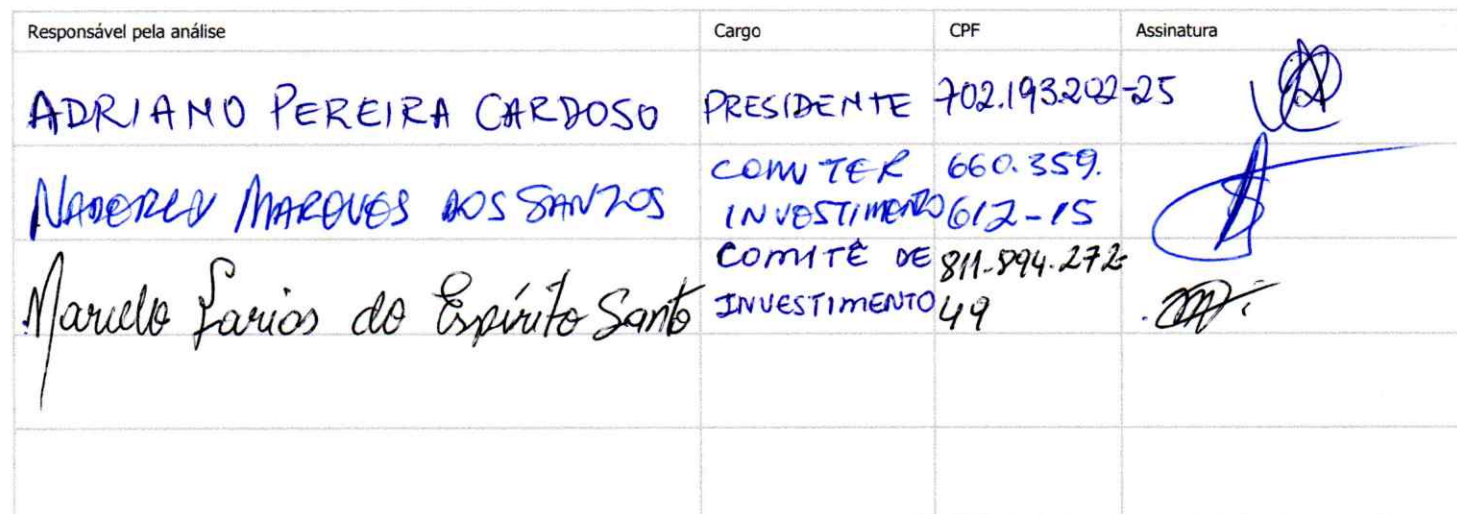 Responsável pela análise Cargo CPF Assinatura
ADRIANO PEREIRA CARDOSO PRESIDENTE 702.193.202-25
MARQUES DOS SANTOS COMITER INVESTIMENTO 660.359.612-15
Marcelo Farias do Espírito Santo COMITÊ DE INVESTIMENTO 811.894.272-49